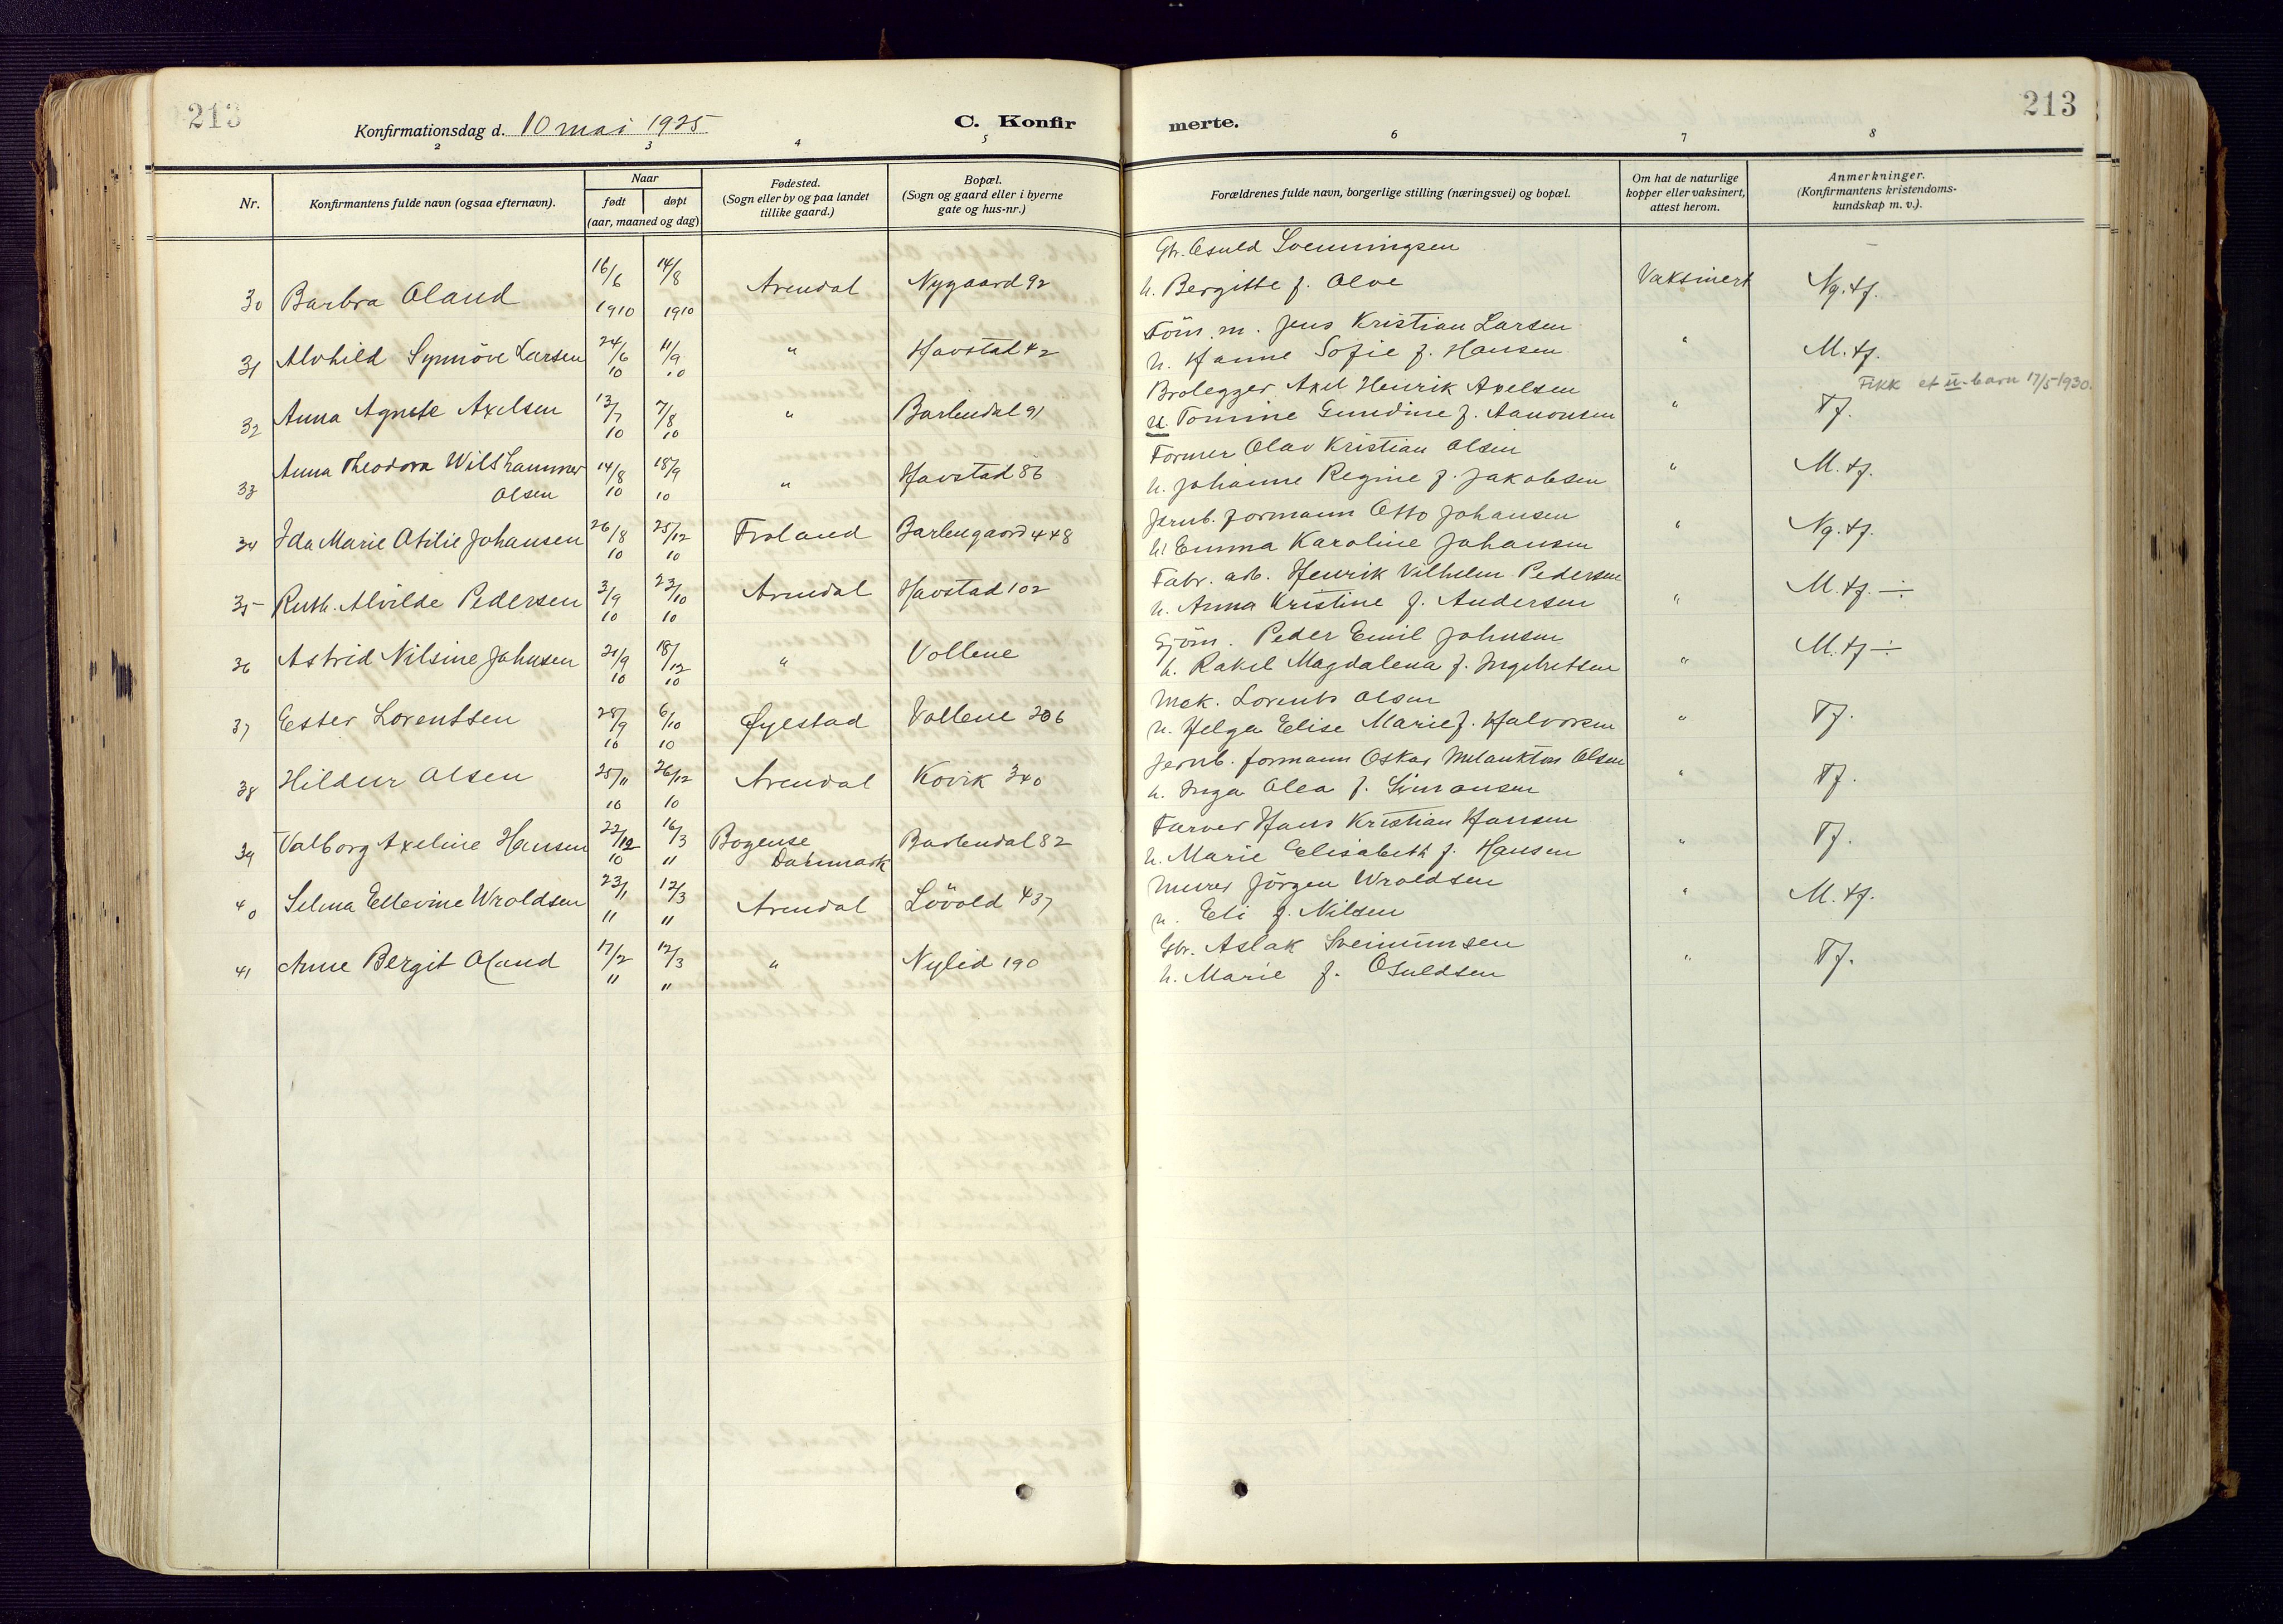 213
Konfirmationsdag d. 10 mai 1925
C. Konfirmerte.
213
2 3 4 5 6 7 8
Nr.
Konfirmantens fulde navn (ogsaa efternavn).
Naar
født døpt
(aar, maaned og dag)
Fødested.
(Sogn eller by og paa landet
tillike gaard.)
Bopæl.
(Sogn og gaard eller i byerne
gate og hus-nr.)
Forældrenes fulde navn, borgerlige stilling (næringsvei) og bopæl.
Om hat de naturlige
kopper eller vaksinert,
attest herom.
Anmerkninger.
(Konfirmantens kristendoms-
kundskap m. v.).
Gbr. Osuld Svenningsen
30 Barbra Oland 16/6 1910 14/8 1910 Arendal Nygaard 92 h. Bergitte f. Olve Vaksinert Ng. tf.
Jens Kristian Larsen
31 Alvhild Synnöve Larsen 24/6 10 11/9 10 " Havstad 42 h. Hanne Sofie f. Hansen " M. tf.
Fikk et u. barn 17/5 1930.
Brolegger Axel Henrik Axelsen
32 Anna Agnete Axelsen 13/7 10 7/8 10 " Barbudal 91 u. Tomine Gundine f. Aanonsen " Tf.
Former Olav Kristian Olsen
33 Anna Theodora Wilshammer Olsen 14/8 10 18/9 10 " Havstad 86 h. Johanne Regine f. Jakobsen " M. tf.
Jernb. formann Otto Johansen
34 Ida Marie Otilie Johansen 26/8 10 25/12 10 Froland Barbugaard 448 h. Emma Karoline Johansen " Ng. tf.
Fabr. arb. Henrik Vilhelm Pedersen
35 Ruth Alvilde Pedersen 3/9 10 23/10 10 Arendal Havstad 102 h. Anna Kristine f. Andersen " M. tf. ÷
Sjöm. Peder Emil Johnsen
36 Astrid Nilsine Johnsen 21/9 10 18/12 10 " Vollene h. Rakel Magdalena f. Ingebretsen " M. tf ÷
Mek. Lorents Olsen
37 Ester Lorentsen 28/9 10 6/10 10 Øyestad Vollene 206 h. Helga Elise Marie f. Halvorsen " Tf.
Jernb. formann Oskar Melankton Olsen
38 Hildur Olsen 25/11 10 26/12 10 Arendal Kovik 340 h. Inga Olea f. Simonsen " Tf.
Farver Hans Kristian Hansen
39 Valborg Axeline Hansen 22/12 10 16/3 11 Bogense Danmark Barbudal 82 h. Marie Elisabeth f. Hansen " Tf.
Murer Jörgen Wroldsen
40 Selma Ellevine Wroldsen 23/1 11 12/3 11 Arendal Lövold 437 h. Eli f. Nilsen " M. tf.
Gbr. Aslak Sveinumsen
41 Anne Bergit Oland 17/2 11 12/3 11 " Nylid 190 h. Marie f. Osuldsen " Tf.